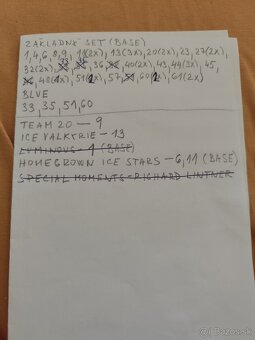 ZÁKLADNÝ SET (BASE)
1,4,6,8,9,11(2x),13(3x),20(2x),23,27(2x),
32(2x),36,40(2x),43,44(3x),45,
48(1x),51(2x),57,60(2x),61(2x)
BLUE
33,35,51,60
TEAM 20 — 9
ICE VALKYRIE - 13
LUMINOUS - 1 (BASE)
HOMEGROWN ICE STARS - 6,11 (BASE)
SPECIAL MOMENTS - RICHARD LINTNER
Bazos.sk